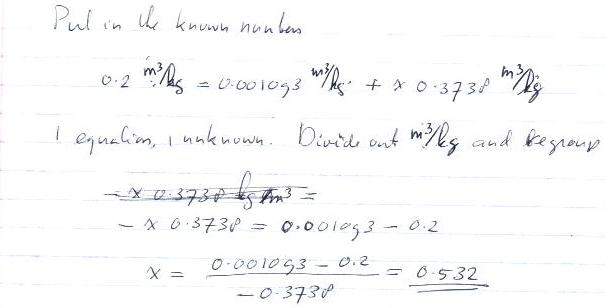 Put in the known numbers
0.2 m³/kg = 0.001093 m³/kg + x 0.3738 m³/kg
1 equation, 1 unknown. Divide out m³/kg and regroup
- x 0.3738 kg m³ =
- x 0.3738 = 0.001093 - 0.2
x = 0.001093 - 0.2 / -0.3738 = 0.532